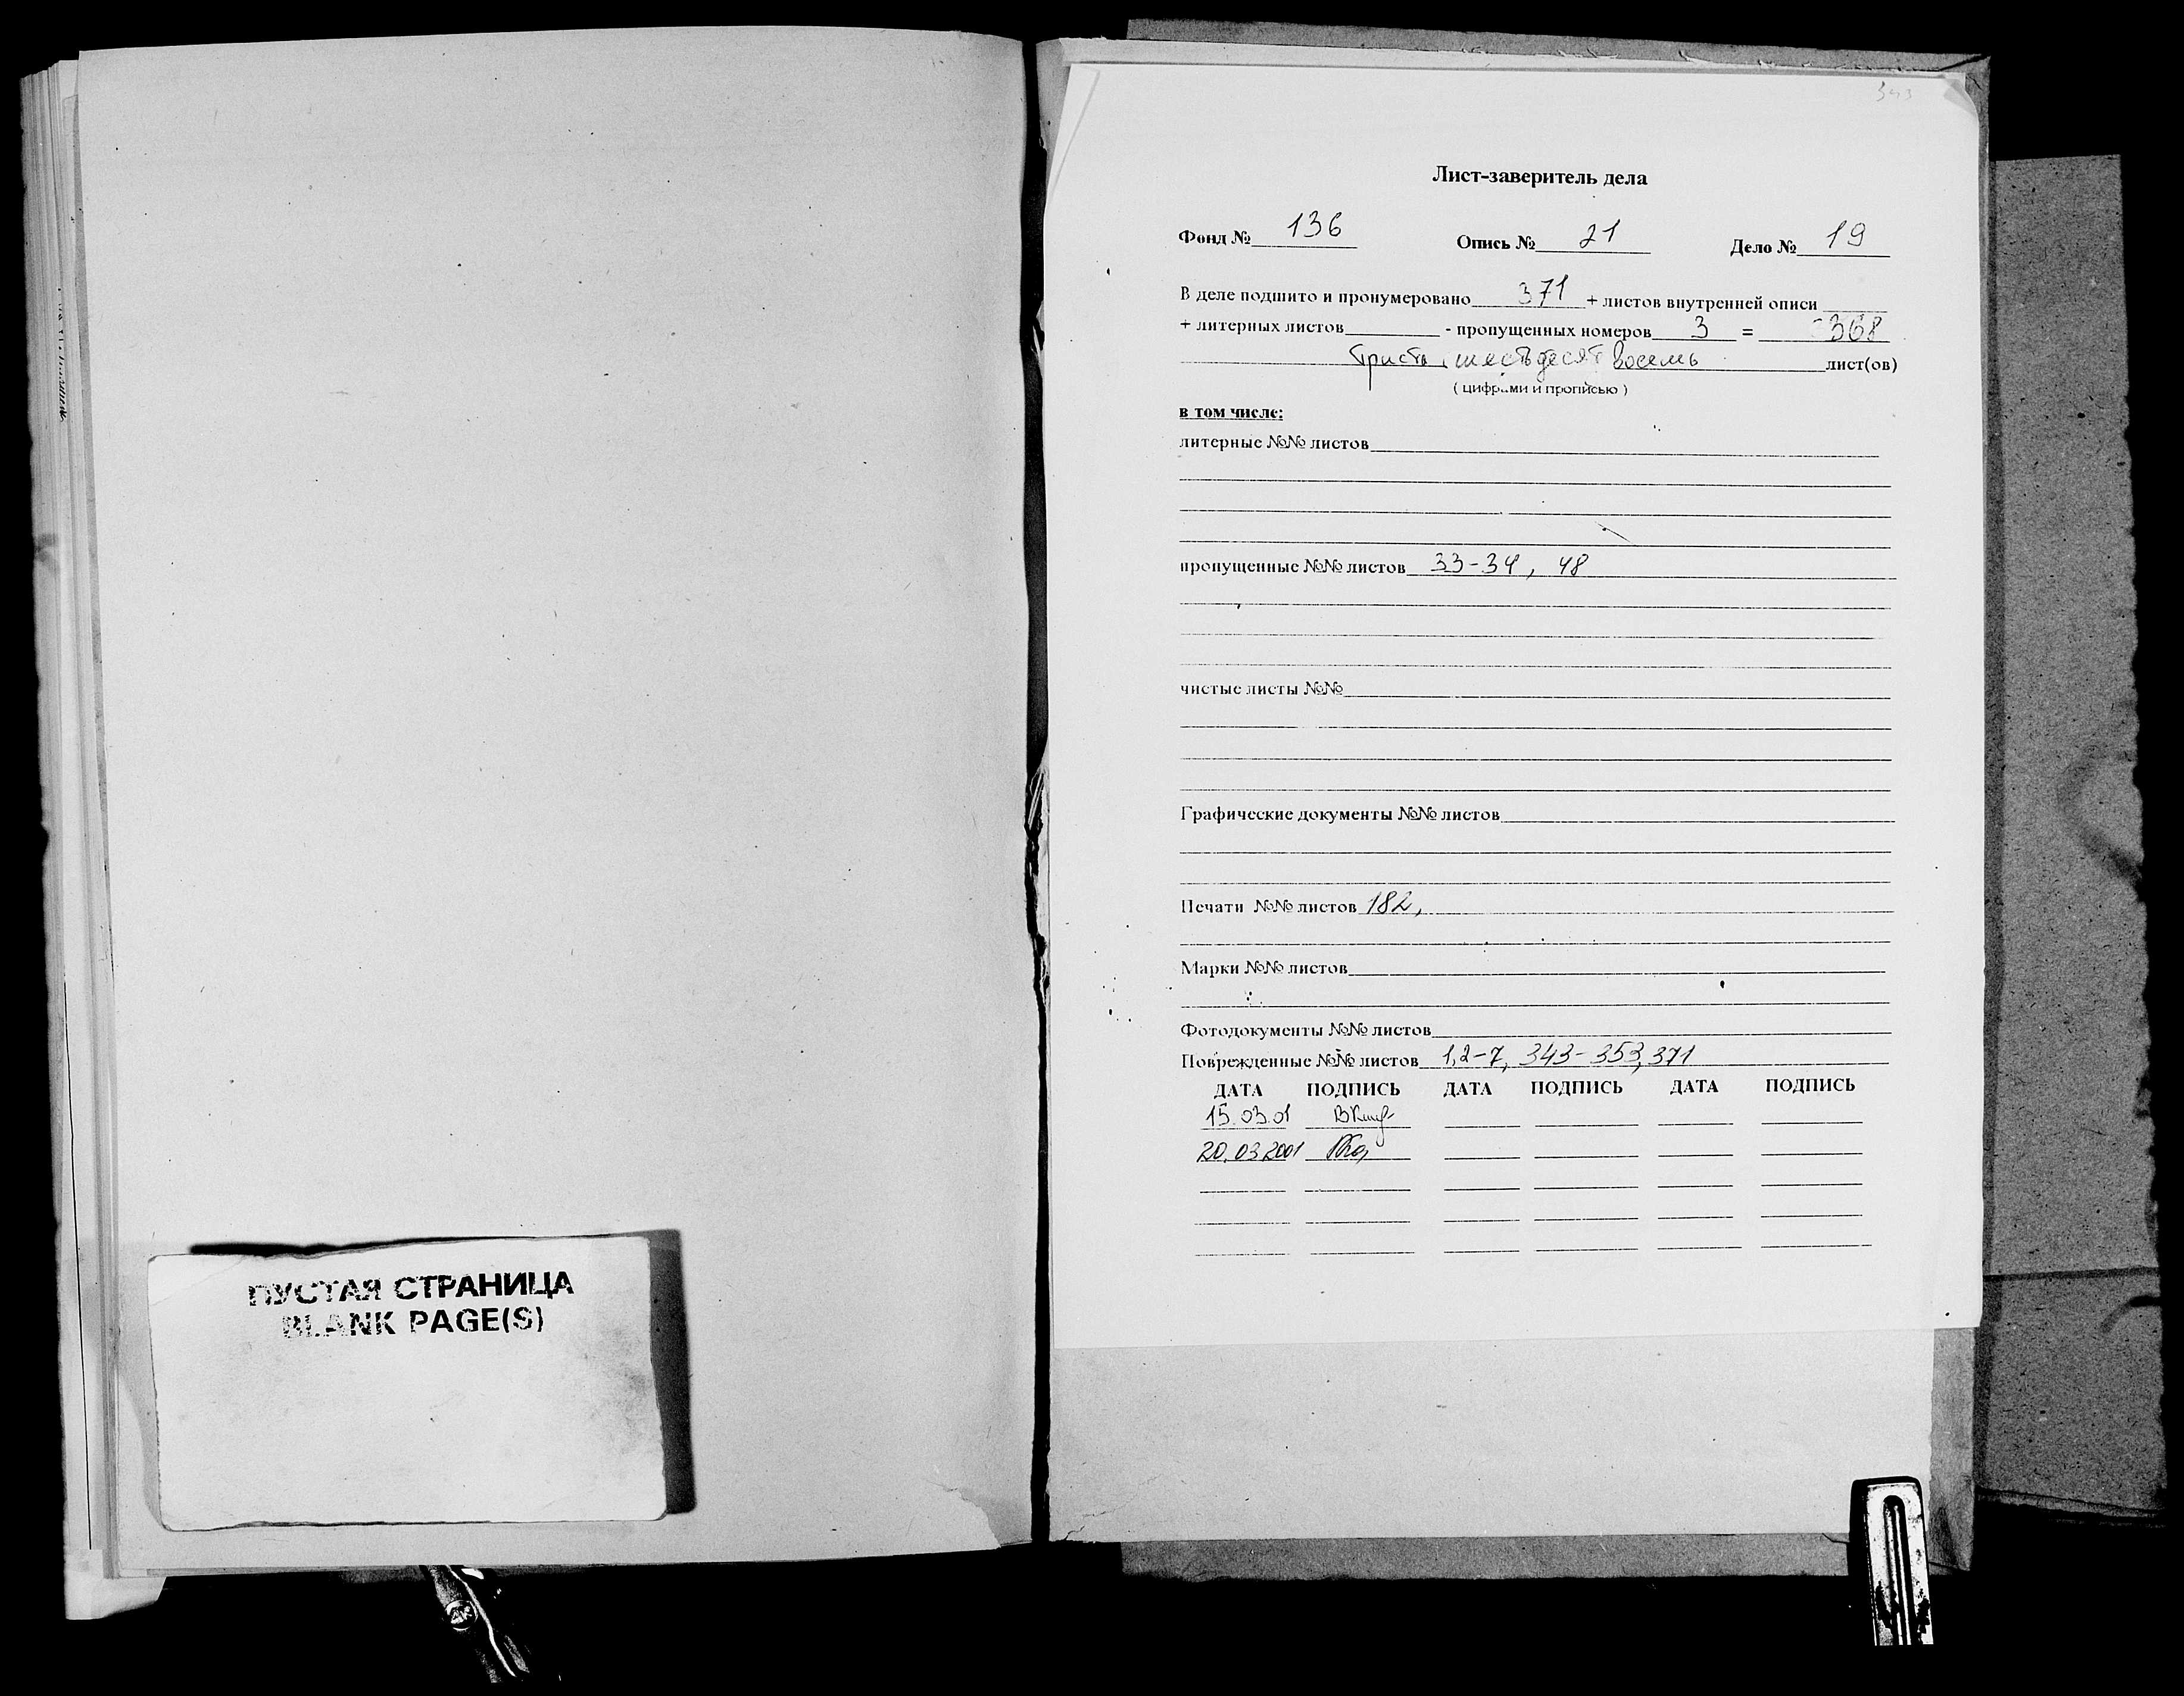 ПУСТАЯ СТРАНИЦА
BLANK PAGE(S)
Лист-заверитель дела
Фонд № 136 Опись № 21 Дело № 19
В деле подшито и пронумеровано 371 + листов внутренней описи
+ литерных листов - пропущенных номеров 3 = 368
триста шестьдесят восемь лист(ов)
( цифрами и прописью )
в том числе:
литерные №№ листов
пропущенные №№ листов 33-34, 48
чистые листы №№
Графические документы №№ листов
Печати №№ листов 182,
Марки №№ листов
Фотодокументы №№ листов
Поврежденные №№ листов 1,2-7, 343-353, 371
ДАТА ПОДПИСЬ ДАТА ПОДПИСЬ ДАТА ПОДПИСЬ
15.03.01
20.03.2001